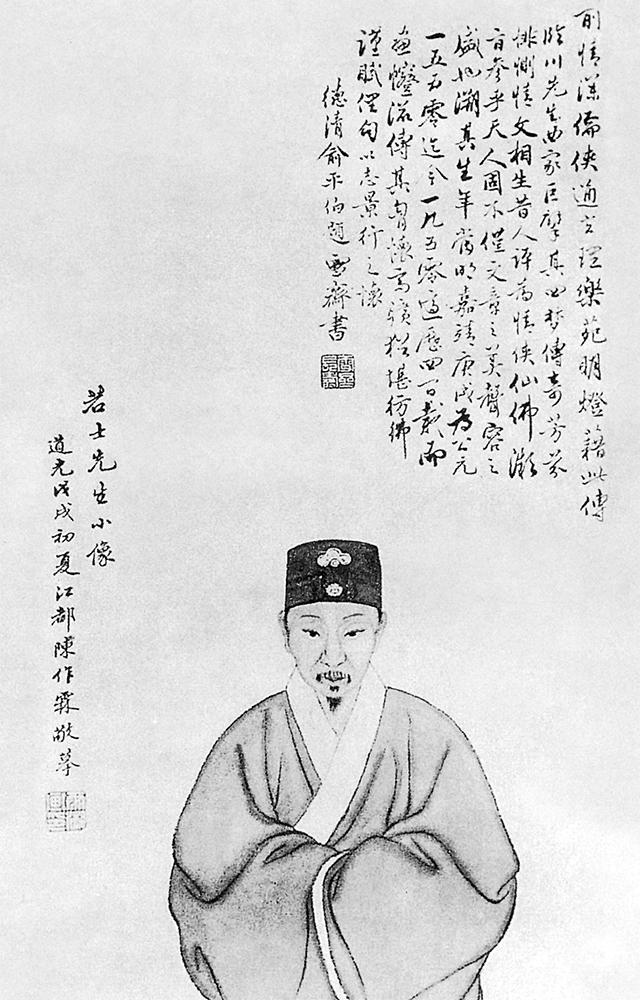 情深俠通理樂苑明燈藉此傳
臨川先生曲家巨擘其四夢傳奇芳芬
悱惻情文相生昔人評為情俠仙佛
旨參乎天人固不僅文章之美聲容之
盛也溯其生年當明嘉靖庚戌為公元
一五五零迄今一九五零適歷四百載而
傳其胷懷高曠猶堪彷彿
謹賦俚句以志景行之懷
德清俞平伯題齋書
若士先生小像
道光戊戌初夏江都陳作霖敬摹